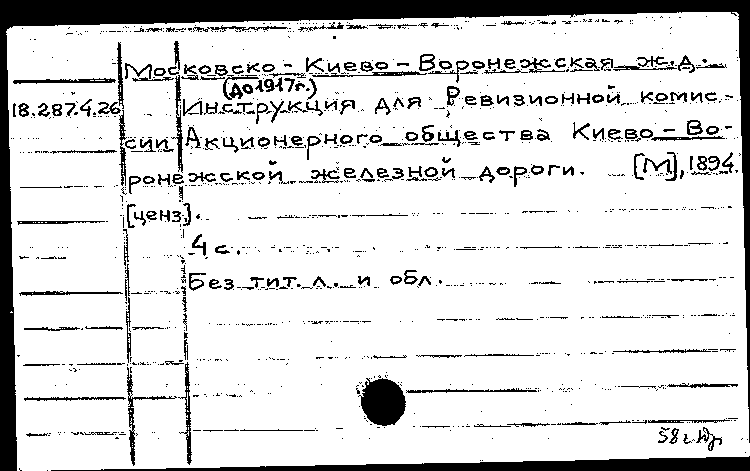 Московско-Киево-Воронежская ж.д.
(до 1917 г.)
18.287.4.26 Инструкция для Ревизионной комис-
сии Акционерного общества Киево-Во-
ронежской железной дороги. [М], 1894
[ценз.].
4 с.
Без тит. л. и обл.
58 г.